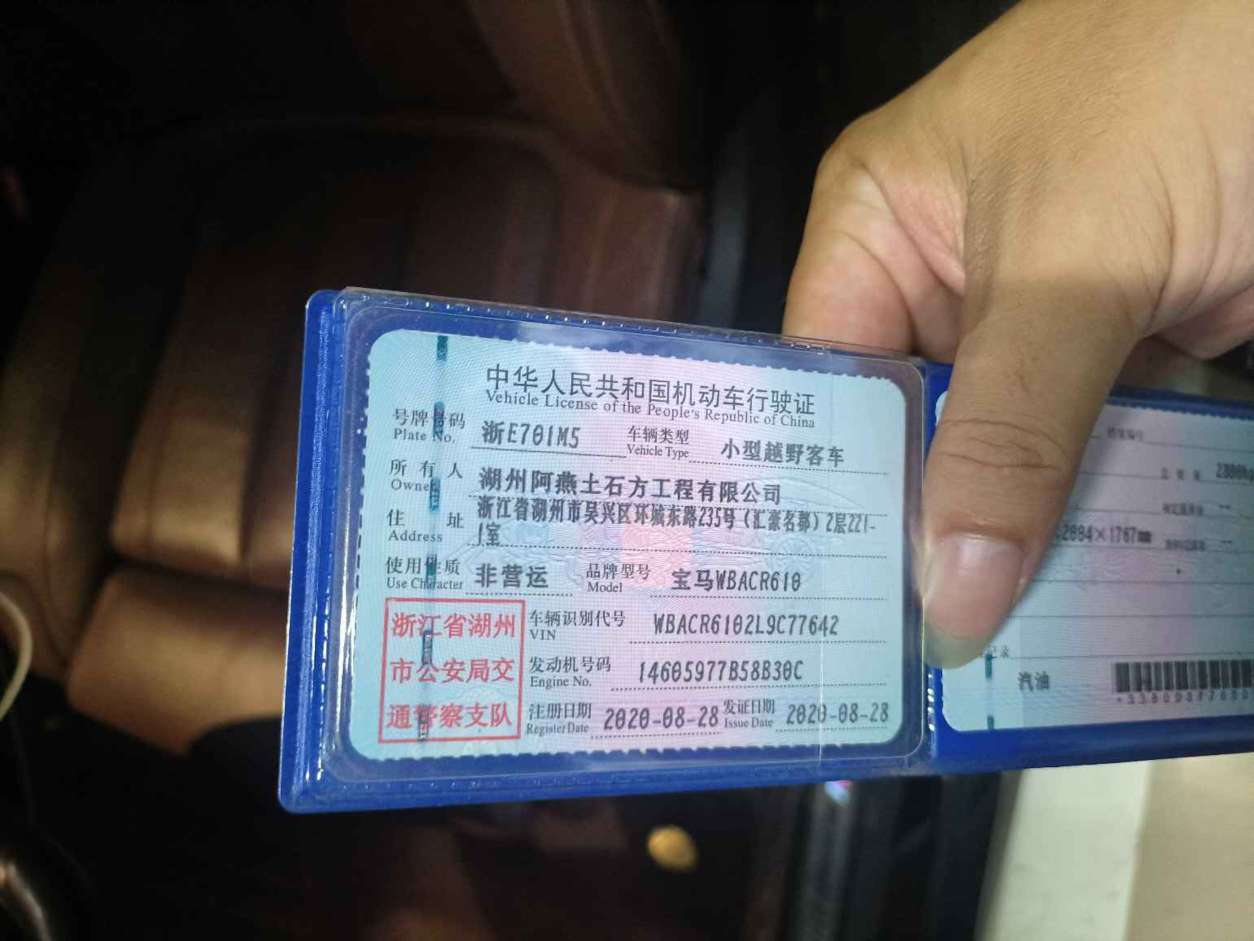 中华人民共和国机动车行驶证
Vehicle License of the People's Republic of China
号牌号码 浙E701M5 车辆类型 小型越野客车
Plate No. Vehicle Type
所有人 湖州阿燕土石方工程有限公司
Owner
住址 浙江省湖州市吴兴区环城东路235号（汇豪名都）2层221-
Address 1室
使用性质 非营运 品牌型号 宝马WBACR610
Use Character Model
浙江省湖州
市公安局交
通警察支队
车辆识别代号 WBACR6102L9C77642
VIN
发动机号码 14605977B58B30C
Engine No.
注册日期 2020-08-28 发证日期 2020-08-28
Register Date Issue Date
2884×1767mm
记录
汽油